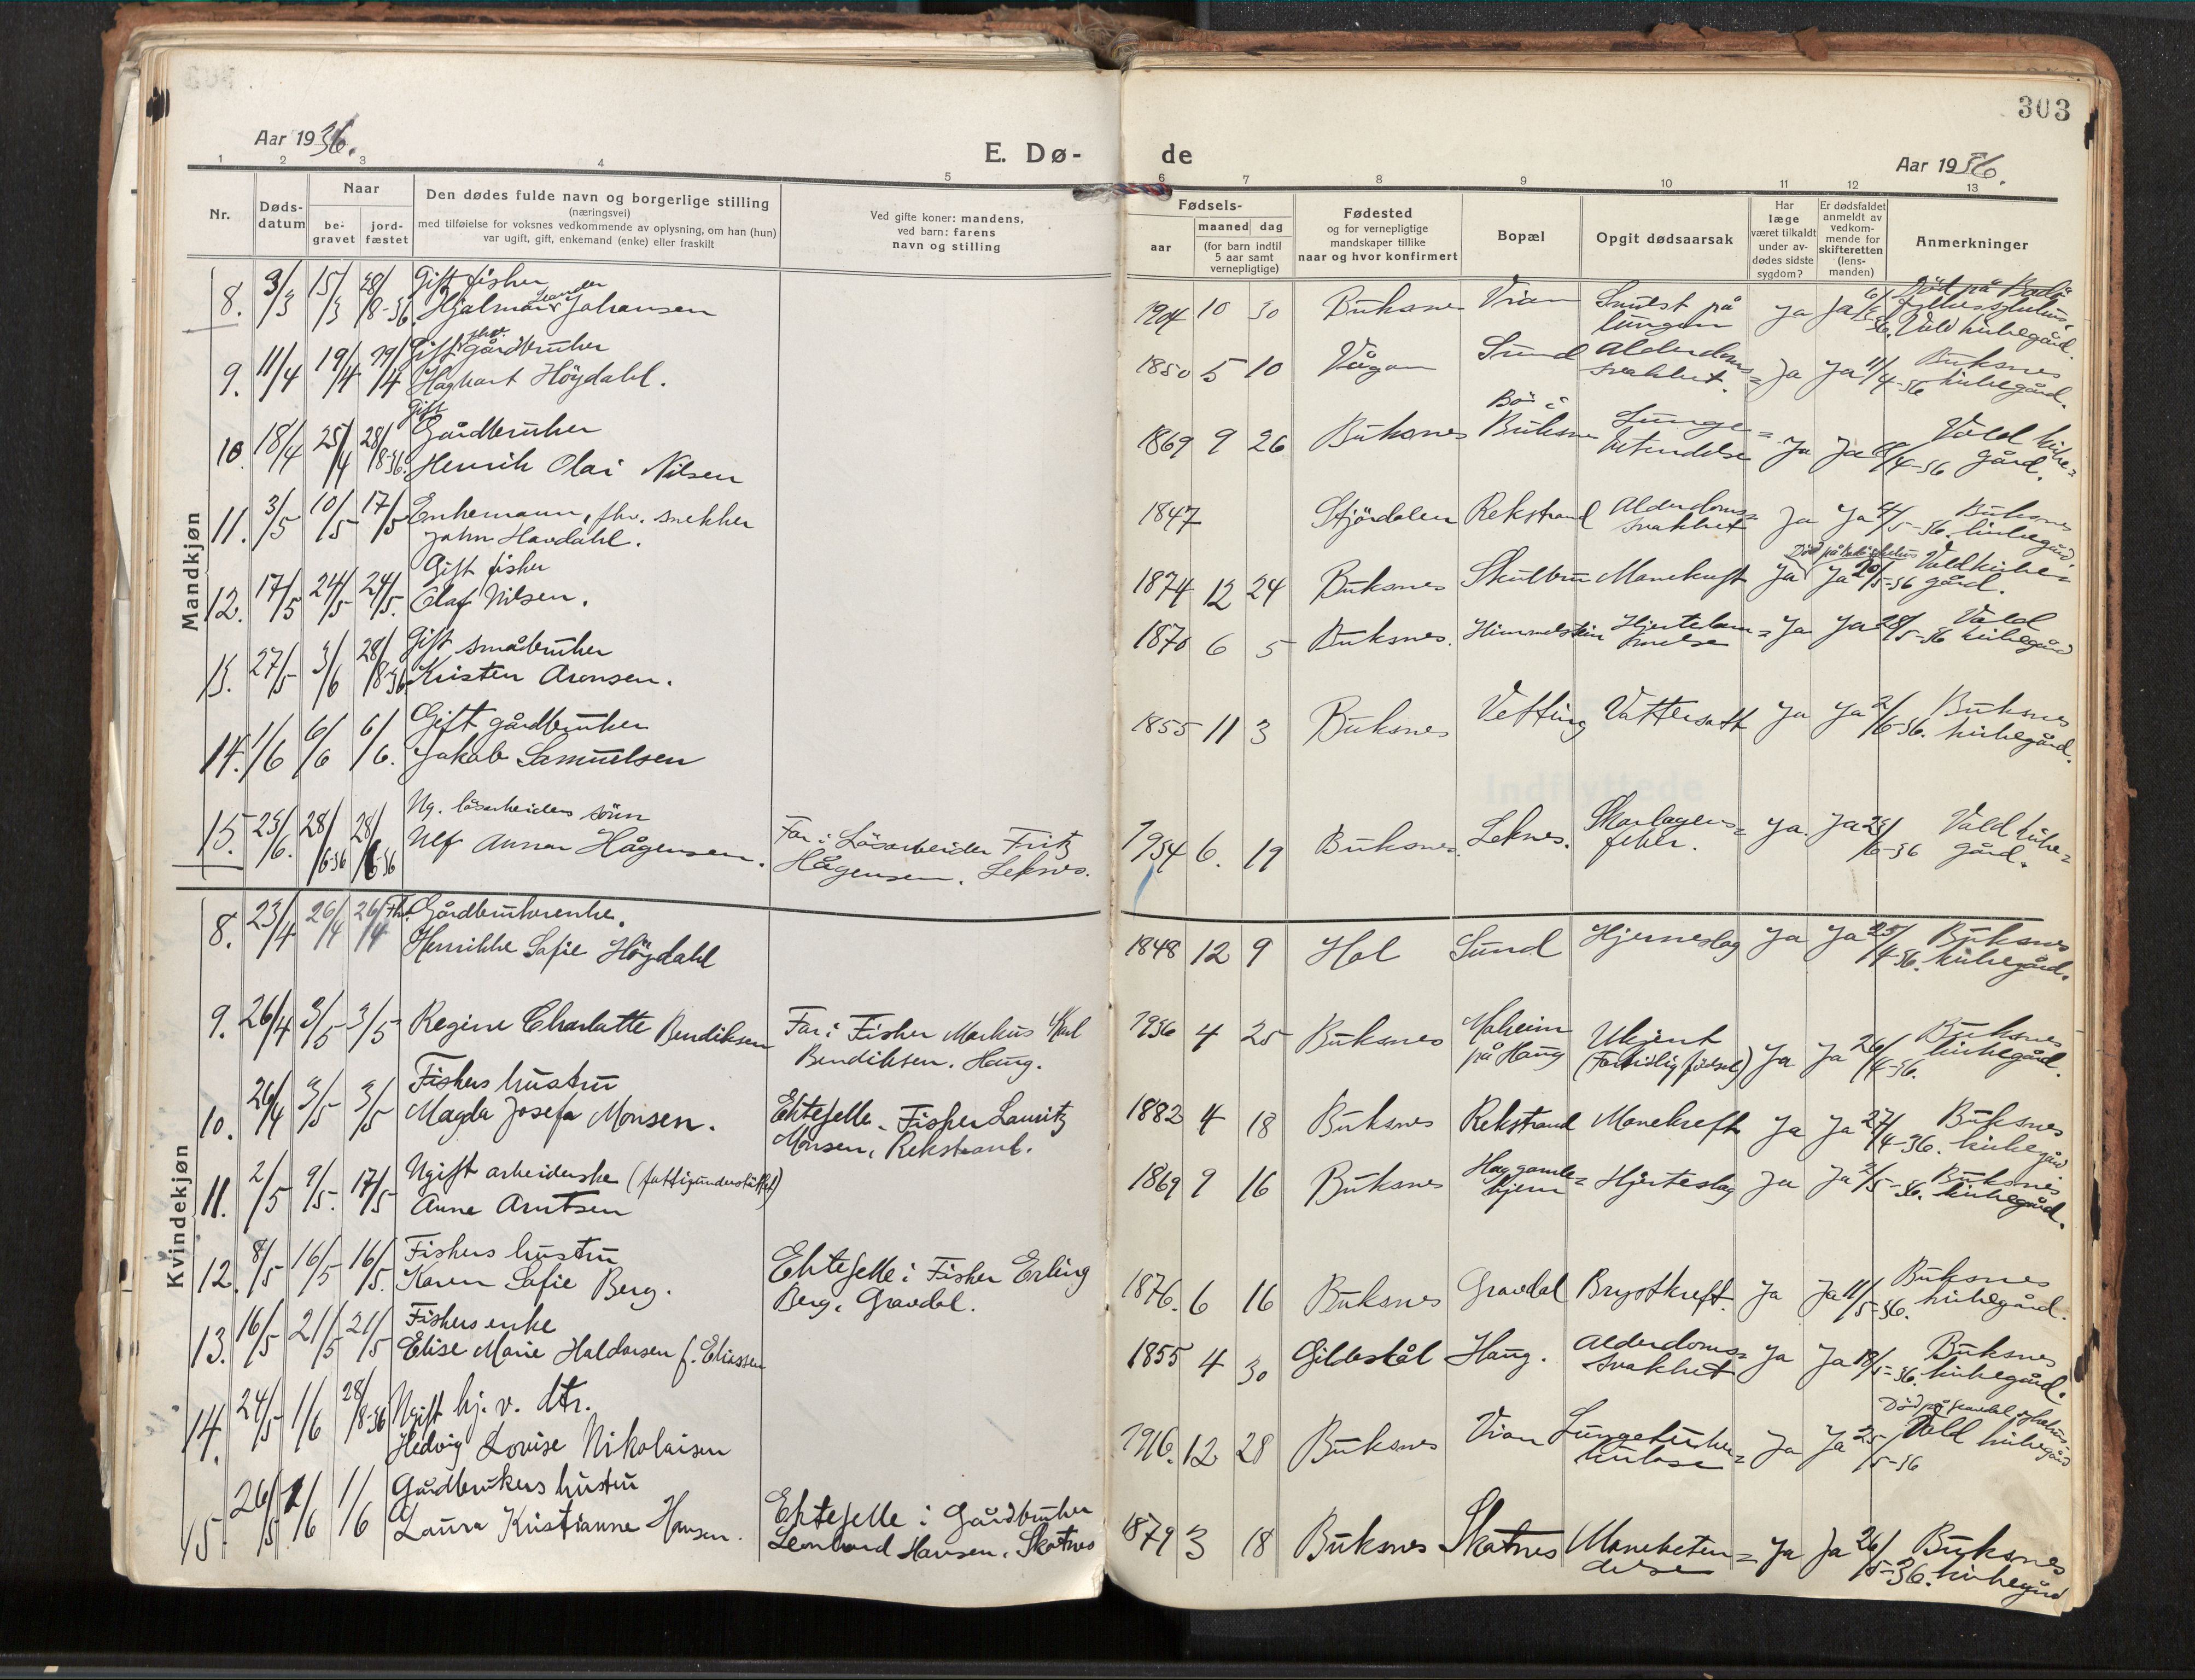 303
Aar 1936.
E. Dø-
de
Aar 1936.
1 2 3 4 5
6 7 8 9 10 11 12 13
Nr.
Døds-
datum
Naar
be-
gravet
jord-
fæstet
Den dødes fulde navn og borgerlige stilling
(næringsvei)
med tilføielse for voksnes vedkommende av oplysning, om han (hun)
var ugift, gift, enkemand (enke) eller fraskilt
Ved gifte koner: mandens,
ved barn: farens
navn og stilling
Fødsels-
aar
maaned dag
(for barn indtil
5 aar samt
vernepligtige)
Fødested
og for vernepligtige
mandskaper tillike
naar og hvor konfirmert
Bopæl
Opgit dødsaarsak
Har
læge
været tilkaldt
under av-
dødes sidste
sygdom?
Er dødsfaldet
anmeldt av
vedkom-
mende for
skifteretten
(lens-
manden)
Anmerkninger
Mandkjøn
8. 3/3 15/3 28/8-36. Gift fisker
Hjalmar Leander Johansen
1904 10 30 Buksnes Vian Svulst på
lungen
ja ja 6/3-36. Død på Bodø
fylkessykehus.
Vold kirkegård.
9. 11/4 19/4 19/4 Gift fhv. gårdbruker
Haghart Höydahl.
1850 5 10 Vågan Sund Alderdoms=
svakhet.
Ja Ja 11/4-36 Buksnes
kirkegård.
10. 18/4 25/4 28/8-36. Gift
Gårdbruker
Henrik Olai Nilsen
1869 9 26 Buksnes Bö i
Buksnes
Lunge=
betendelse
Ja Ja 18/4-36 Vold kirke=
gård.
11. 3/5 10/5 17/5 Enkemann, fhv. snekker
John Havdahl.
1847 Stjördalen Rekstrand Alderdoms=
svakhet
Ja Ja 4/5-36. Buksnes
kirkegård.
12. 17/5 24/5 24/5. Gift fisker
Olaf Nilsen.
1874 12 24 Buksnes Skulbru Mavekreft Ja Ja 20/5-36 Vold kirke=
gård.
13. 27/5 3/6 28/8-36 Gift småbruker
Kristen Aronsen.
1870 6 5 Buksnes. Himmelstein Hjertelam=
melse
Ja Ja 28/5-36 Vold
kirkegård
14. 1/6 6/6 6/6. Gift gårdbruker
Jakob Samuelsen
1855 11 3 Buksnes Vetting Vattersott Ja Ja 2/6-36. Buksnes
kirkegård.
15. 23/6. 28/6-36 28/6-36 Ug. løsarbeiders sönn
Ulf Annar Hågensen.
Far: Løsarbeider Fritz
Hågensen, Leknes.
1934 6. 19 Buksnes. Leknes. Skarlagens=
feber.
Ja. Ja 23/6-36 Vold kirke=
gård.
Kvindekjøn
8. 23/4 26/4 26/4 Fhv. Gårdbrukerenke.
Henrikke Sofie Höydahl
1848 12 9 Hol Sund Hjerneslag Ja Ja 25/4-36. Buksnes
kirkegård.
9. 26/4 3/5 3/5 Regine Charlotte Bendiksen
Far: Fisker Markus Karl
Bendiksen. Haug.
1936 4 25 Buksnes Moheim
på Haug
Ukjent
(Fortidlig fødsel)
Ja Ja 26/4-36. Buksnes
kirkegård.
10. 26/4 3/5 3/5 Fiskers hustru
Magda Josefa Monsen.
Ektefelle. Fisker Lauritz
Monsen, Rekstrand.
1882 4 18 Buksnes Rekstrand Mavekreft Ja Ja 27/4-36. Buksnes
kirkegård
11. 2/5 9/5. 17/5 Ugift arbeiderske (fattigunderstøttet)
Anne Arntsen
1869 9 16 Buksnes Hag gamle=
hjem
Hjerteslag Ja Ja 2/5-36. Buksnes
kirkegård.
12. 8/5 16/5 16/5. Fiskers hustru
Karen Sofie Berg.
Ektefelle: Fisker Erling
Berg, Gravdal.
1876. 6 16 Buksnes Gravdal Brystkreft. Ja Ja 11/5-36. Buksnes
kirkegård.
13. 16/5 21/5 21/5 Fiskers enke
Elise Marie Haldorsen f. Eliassen
1855 4 30 Gildeskål Haug. Alderdoms=
svakhet
Ja Ja 18/5-36. Buksnes
kirkegård.
14. 24/5 1/6 28/8-36 Ugift hj. v. dtr.
Hedvig Lovise Nikolaisen
1916. 12 28 Buksnes Vian Lungetuber=
kulose
Ja Ja 25/5-36 Død på Gravdal sykehus
Vold kirkegård
15. 26/5 1/6 1/6 Gårdbrukers hustru
Laura Kristianne Hansen.
Ektefelle: Gårdbruker
Leonhard Hansen, Skotnes
1879 3 18 Buksnes Skotnes Mavebeten=
delse
Ja Ja 26/5-36. Buksnes
kirkegård